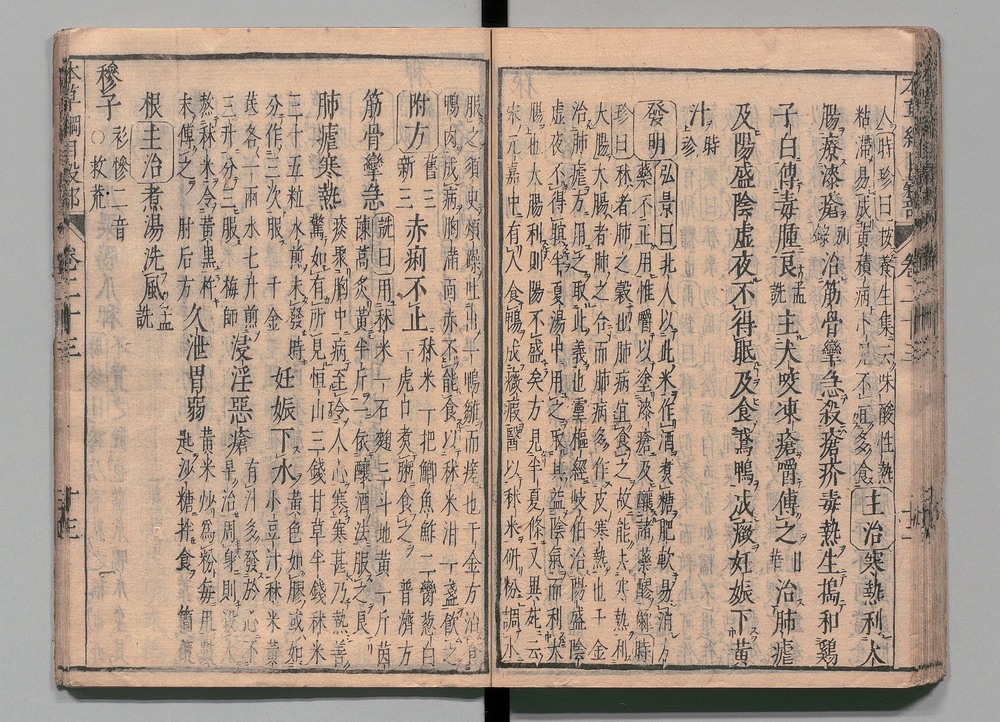 人時珍曰按養生集云味酸性熱
粘滯易成黃積病小兒不宜多食主治寒熱利大
腸療漆瘡別錄治筋骨攣急殺瘡疥毒熱生搗和雞
子白傅毒腫良孟詵主犬咬凍瘡嚼傅之日華治肺瘧
及陽盛陰虛夜不得眠及食鵞鴨成癥妊娠下黃
汁時珍
發明弘景曰北人以此米作酒煮糖肥軟易消方
藥不正用惟嚼以塗漆瘡及釀諸藥醪爾時
珍曰秫者肺之穀也肺病宜食之故能去寒熱利
大腸大腸者肺之合而肺病多作皮寒熱也千金
治肺瘧方用之取此義也靈樞經岐伯治陽盛陰
虛夜不得瞑半夏湯中用之取其益陰氣而利大
腸也大腸利則陽不盛矣方見半夏條又異苑云
宋元嘉中有人食鴨成癥瘕醫以秫米研粉調水
服之須臾煩躁吐出一鴨雛而瘥也千金方治食
鴨肉成病胸滿面赤不能食以秫米泔一盞飲之
附方舊三新三赤痢不止秫米一把鯽魚鮓二臠薤白
一虎口煮粥食之普濟方
筋骨攣急詵曰用秫米一石麴三斗地黃一斤茵
蔯蒿炙黃半斤一依釀酒法服之良
肺瘧寒熱痰聚胸中病至令人心寒寒甚乃熱善
驚如有所見恒山三錢甘草半錢秫米
三十五粒水煎未發時
分作三次服千金妊娠下水黃色如膠或如
小豆汁秫米黃
芪各一兩水七升煎
三升分三服梅師浸淫惡瘡有汁多發於心不
早治周身則殺人
熬秫米令黃黑杵
末傅之肘后方久泄胃弱黃米炒爲粉每用數
匙沙糖拌食簡便
根主治煮湯洗風孟詵
穇子彩慘二音○救荒
本草綱目穀部
卷二十三
十三